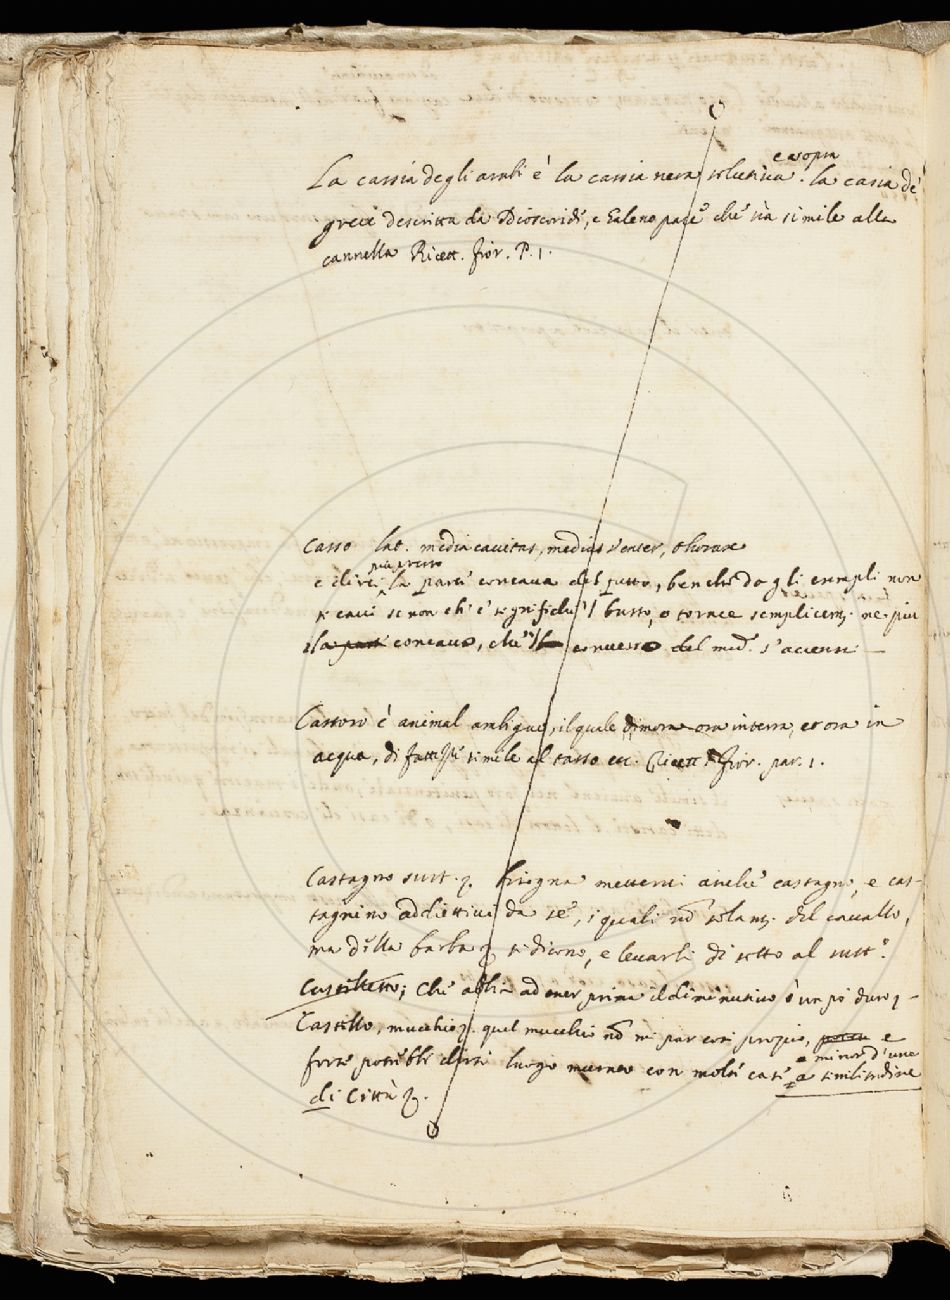 La cassia degli arabi è la cassia nera solutiua e sopra. la casia de
greci descritta da Dioscoride, e Galeno pare che sia simile alla
cannella Ricett. fior. P. 1.
Casso lat. media cauitas, medius venter, thorax
e direi più presto la parte concaua del petto, benche dagli esempli non
si caui se non che è significhi 'l busto, o torace semplicem. ne più
la parte concaua, che 'l conuesso del med. s'accenni
Castoro è animal anfiguo, il quale dimora ora in terra, et ora in
acqua, di fattezze simile al tasso etc. Ricett. Fior. par. 1.
Castagno sust. bisogna metterui anche castagno, e cas-
tagnino addiettiui da se, i quali nõ solam. del cauallo,
ma della barba si dicono, e leuarli di sotto al sust.º
Castelletto; che abbia ad esser prima il diminutiuo è un po duro
Castello, mucchio. quel mucchio nõ mi par così proprio, e
forse potrebbe dirsi luogo murato con molte case a similitudine
e minor d'una
di Città